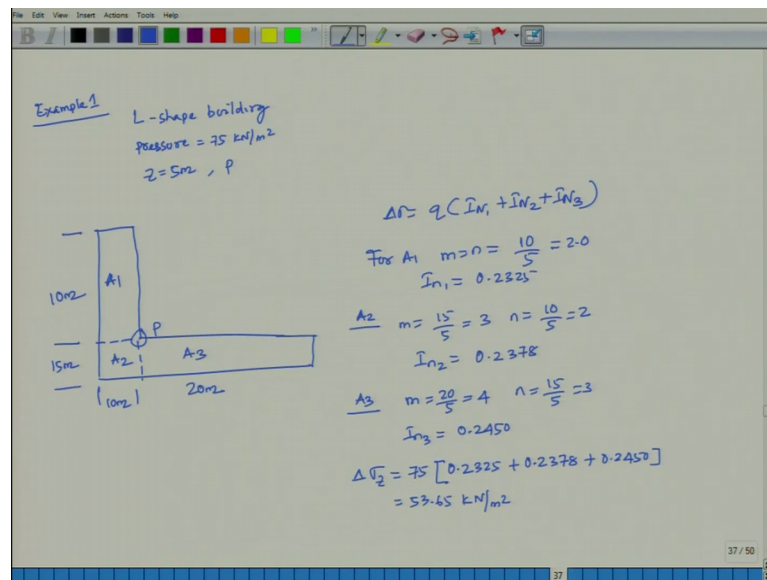 File Edit View Insert Actions Tools Help
Example 1
L-shape building
pressure = 75 kN/m²
z = 5m , P
10m
A1
P
15m
A2
A3
10m
20m
Δσ = q (IN₁ + IN₂ + IN₃)
For A1 m = n = 10/5 = 2.0
In₁ = 0.2325
A2 m = 15/5 = 3 n = 10/5 = 2
In₂ = 0.2378
A3 m = 20/5 = 4 n = 15/5 = 3
In₃ = 0.2450
Δσz = 75 [0.2325 + 0.2378 + 0.2450]
= 53.65 kN/m²
37 / 50
37